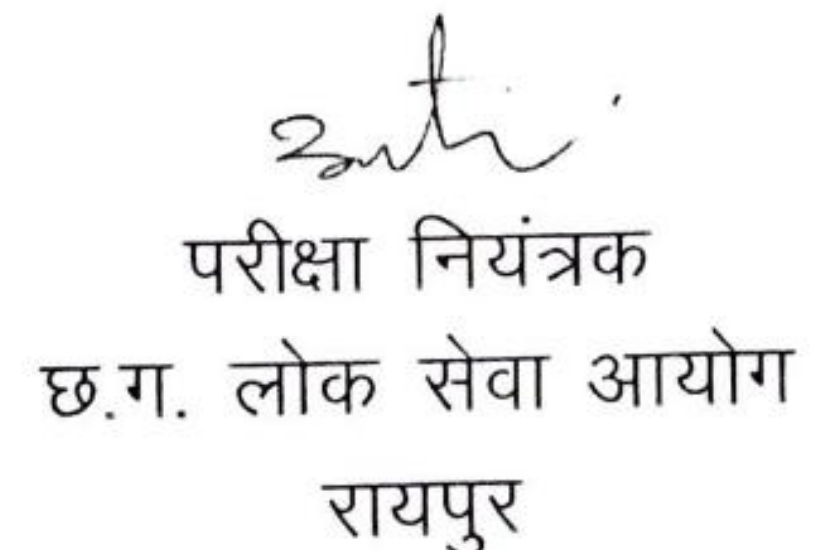 परीक्षा नियंत्रक
छ.ग. लोक सेवा आयोग
रायपुर